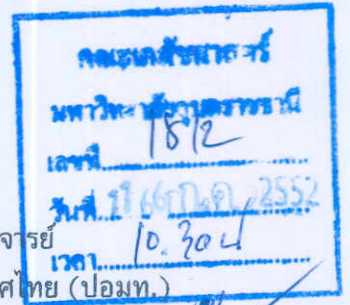 คณะเภสัชศาสตร์
มหาวิทยาลัยอุบลราชธานี
เลขที่ 1812
วันที่ 16 ก.ค. 2552
จารย์
เวลา 10.30 น
ศไทย (ปอมท.)